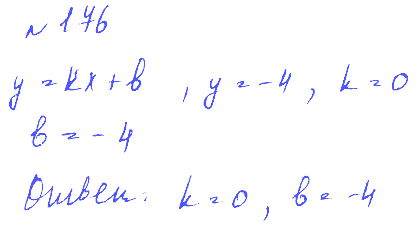 № 176
y = kx + b , y = -4 , k = 0
b = - 4
Ответ: k = 0 , b = -4